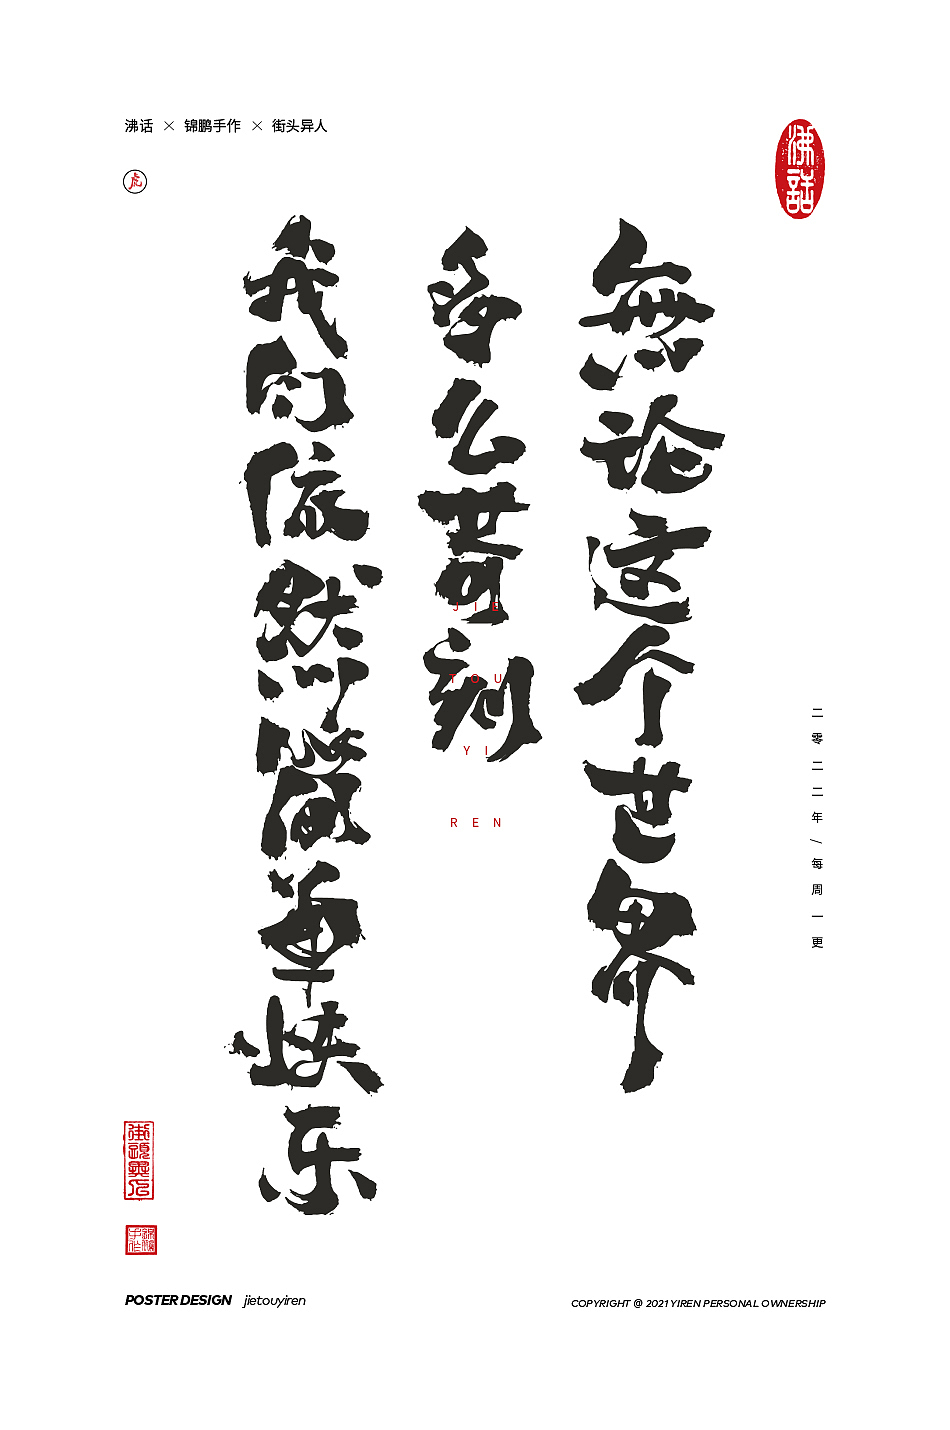 沸话 × 锦鹏手作 × 街头异人
虎
沸話
無论这个世界
多么苛刻
我们依然简单快乐
JIE
TOU
YI
REN
二零二二年/每周一更
街頭異人
POSTER DESIGN jietouyiren
COPYRIGHT @ 2021 YIREN PERSONAL OWNERSHIP